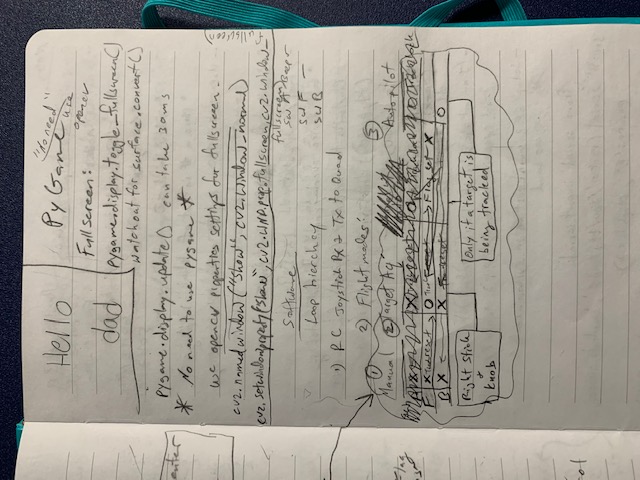 Hello
dad
PyGame
"No need"
use
opencv
Fullscreen:
pygame.display.toggle_fullscreen()
watchout for surface.convert()
pygame.display.update() can take 30ms
* No need to use pygame *
use opencv properties settings for fullscreen.
cv2.namedwindow("Show", cv2.Window_normal)
cv2.setwindowproperty("show", cv2.WND_prop_fullscreen, cv2.window_
fullscreen)
Software
sw. A Beeper
sw F -
sw B
Loop hierchy
1) RC Joystick Rx & Tx to Quad
2) Flight modes:
① Manual
② Target Aq
③ Autopilot
F X
O
Flag set X
B X
X
O
Right Stick
& Knob
Only if a target is
being tracked
enter